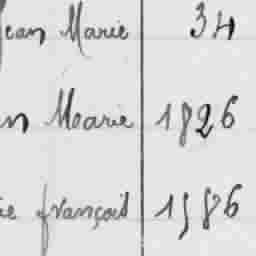 Jean Marie 34
n Marie 1826
ie françois 1886